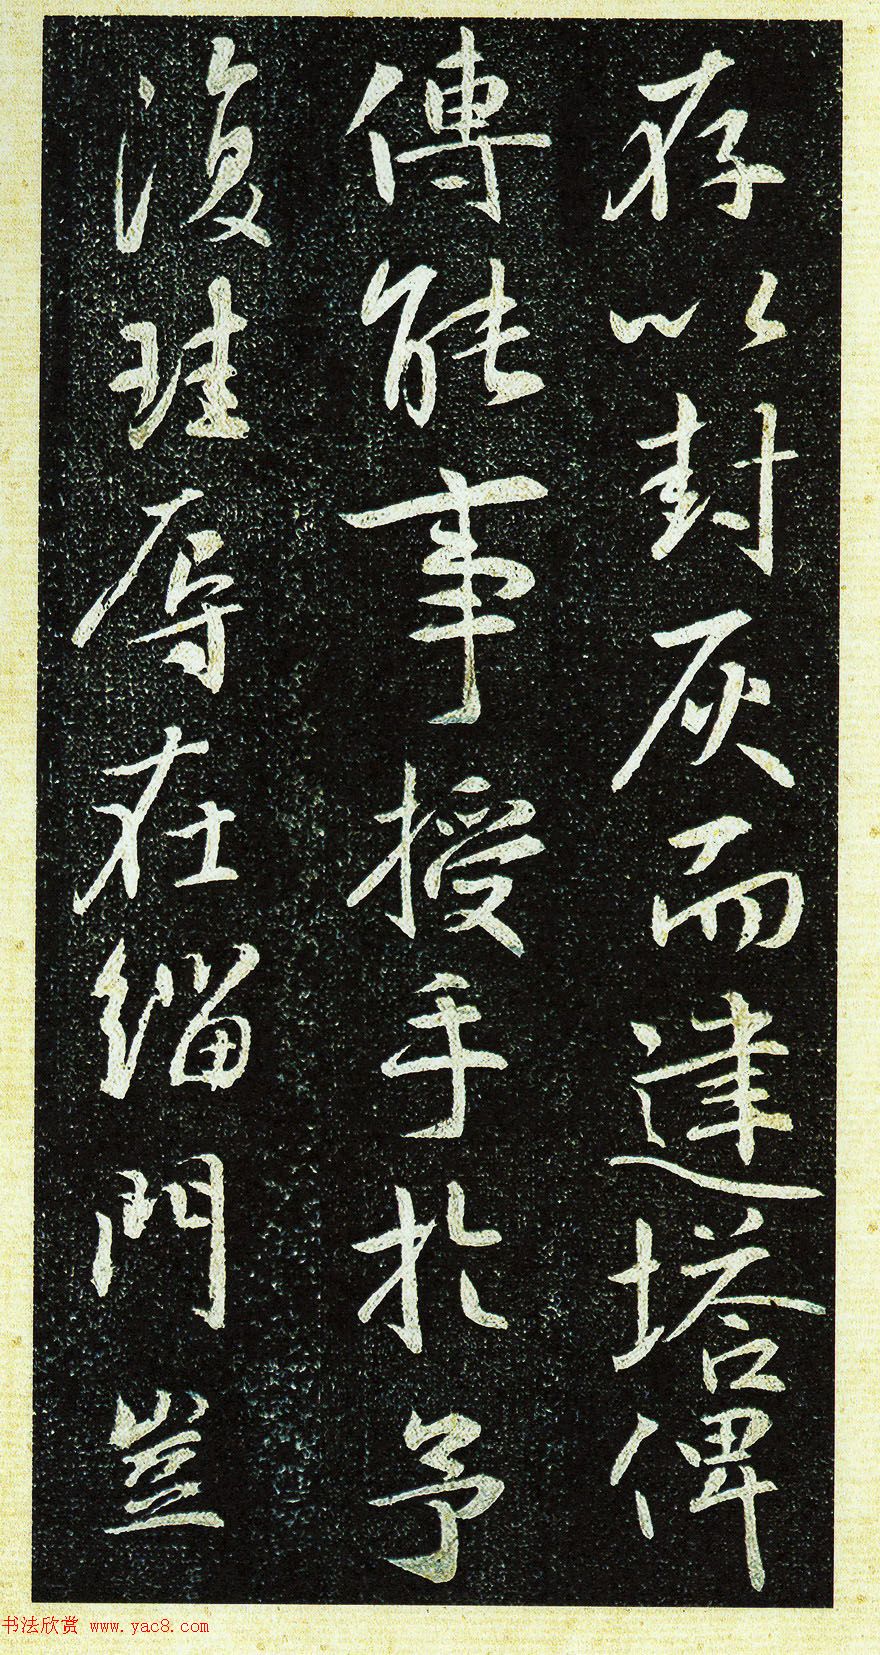 存以封灰而建塔俾
傳能事授手於予
復珪辱在緇門豈
书法欣赏 www.yac8.com